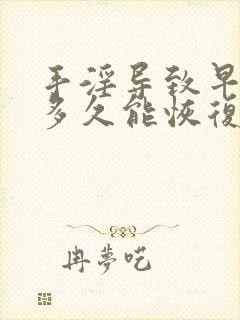 手淫导致早
多久能恢復
冉夢呓